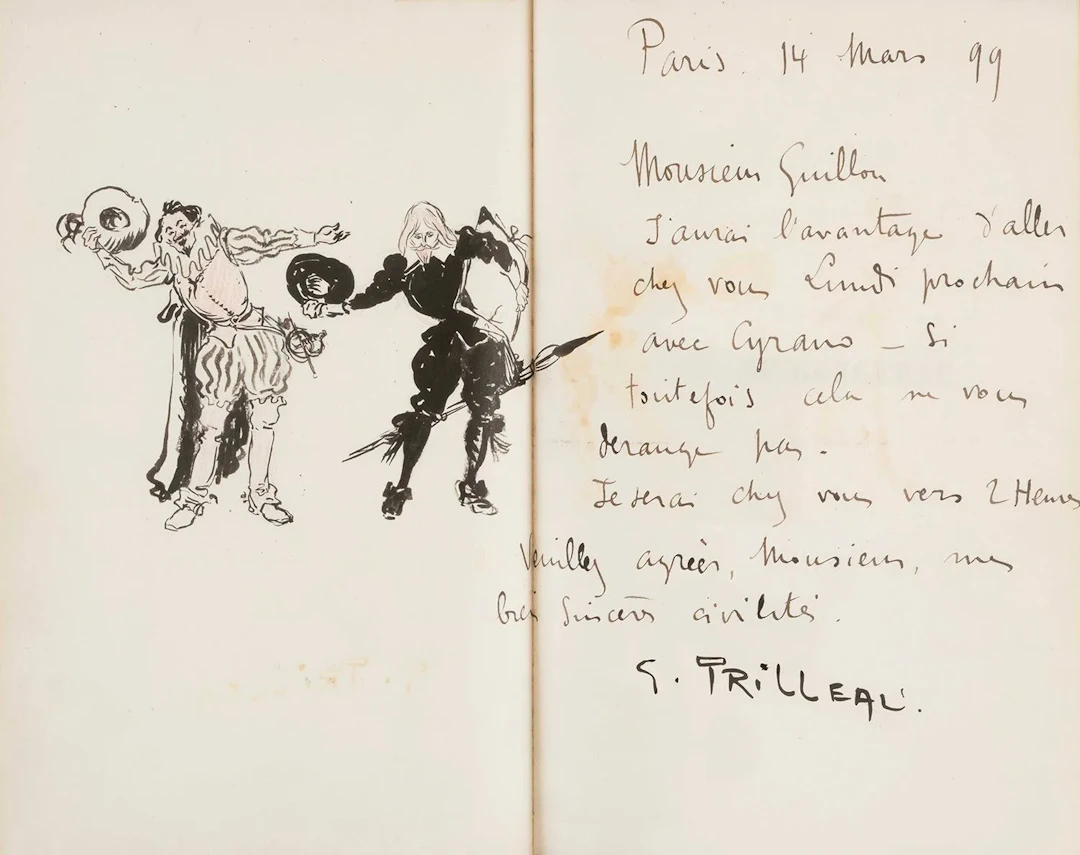 Paris. 14 Mars 99
Monsieur Guillon
J'aurai l'avantage d'aller
chez vous Lundi prochain
avec Cyrano – Si
toutefois cela ne vous
derange pas.
Je serai chez vous vers 2 Heures
Veuillez agréer, Monsieur, mes
bien Sincères civilités.
G. TRiLLEAU.